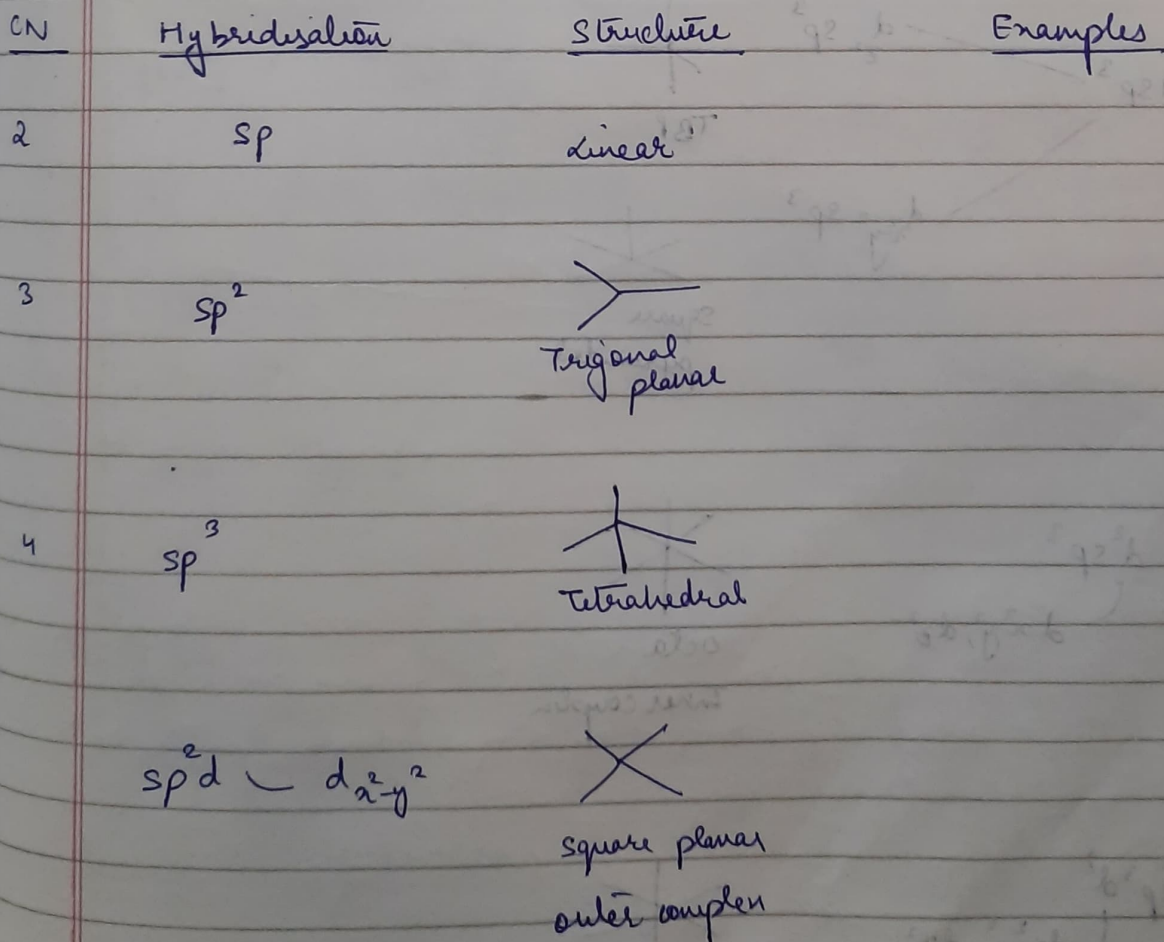 CN Hybridisation Structure Examples
2 sp Linear
3 sp²
Trigonal
planar
4 sp³
Tetrahedral
sp²d dx²-y²
square planar
outer complex